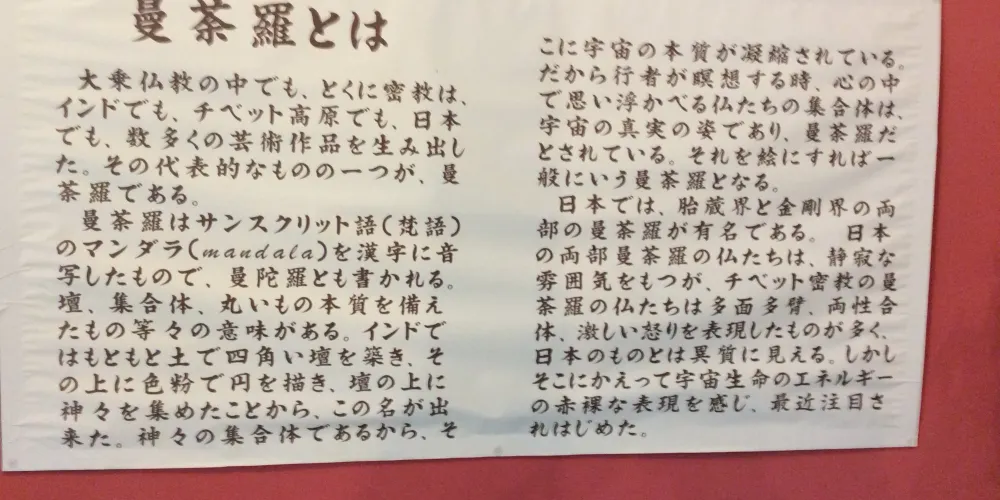 曼荼羅とは
大乗仏教の中でも、とくに密教は、
インドでも、チベット高原でも、日本
でも、数多くの芸術作品を生み出し
た。その代表的なものの一つが、曼
荼羅である。
曼荼羅はサンスクリット語(梵語)
のマンダラ(mandala)を漢字に音
写したもので、曼陀羅とも書かれる。
壇、集合体、丸いもの本質を備え
たもの等々の意味がある。インドで
はもともと土で四角い壇を築き、そ
の上に色粉で円を描き、壇の上に
神々を集めたことから、この名が出
来た。神々の集合体であるから、そ
こに宇宙の本質が凝縮されている。
だから行者が瞑想する時、心の中
で思い浮かべる仏たちの集合体は、
宇宙の真実の姿であり、曼荼羅だ
とされている。それを絵にすれば一
般にいう曼荼羅となる。
日本では、胎蔵界と金剛界の両
部の曼荼羅が有名である。 日本
の両部曼荼羅の仏たちは、静寂な
雰囲気をもつが、チベット密教の曼
荼羅の仏たちは多面多臂、両性合
体、激しい怒りを表現したものが多く、
日本のものとは異質に見える。しかし
そこにかえって宇宙生命のエネルギー
の赤裸な表現を感じ、最近注目さ
れはじめた。